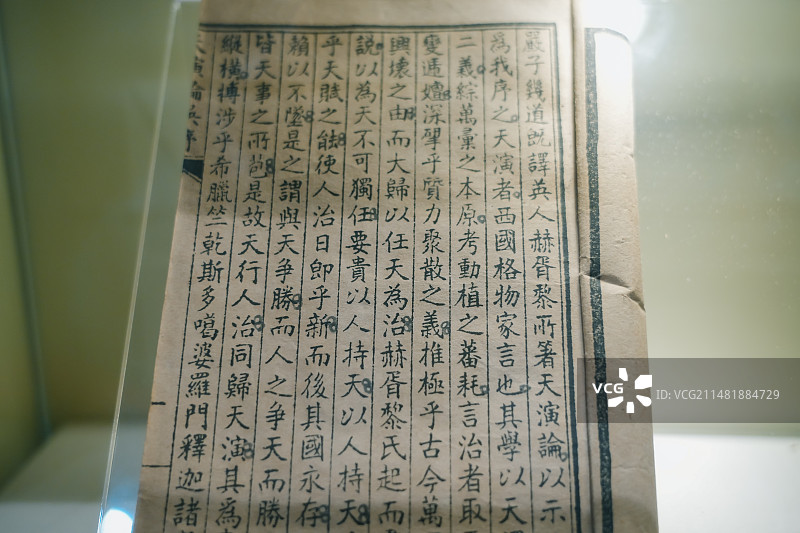 嚴子幾道既譯英人赫胥黎所箸天演論以示
為我序之天演者西國格物家言也其學以天
二義綜萬彙之本原考動植之蕃耗言治者取
變遞嬗深揅乎質力聚散之義推極乎古今萬
興壞之由而大歸以任天為治赫胥黎氏起而
說以為天不可獨任要貴以人持天以人持天
乎天賦之能使人治日即乎新而後其國永存
賴以不墜是之謂與天爭勝而人之爭天而勝
皆天事之所苞是故天行人治同歸天演其為
縱橫摶涉乎希臘竺乾斯多噶婆羅門釋迦諸
天演論吳序
VCG
VCG211481884729